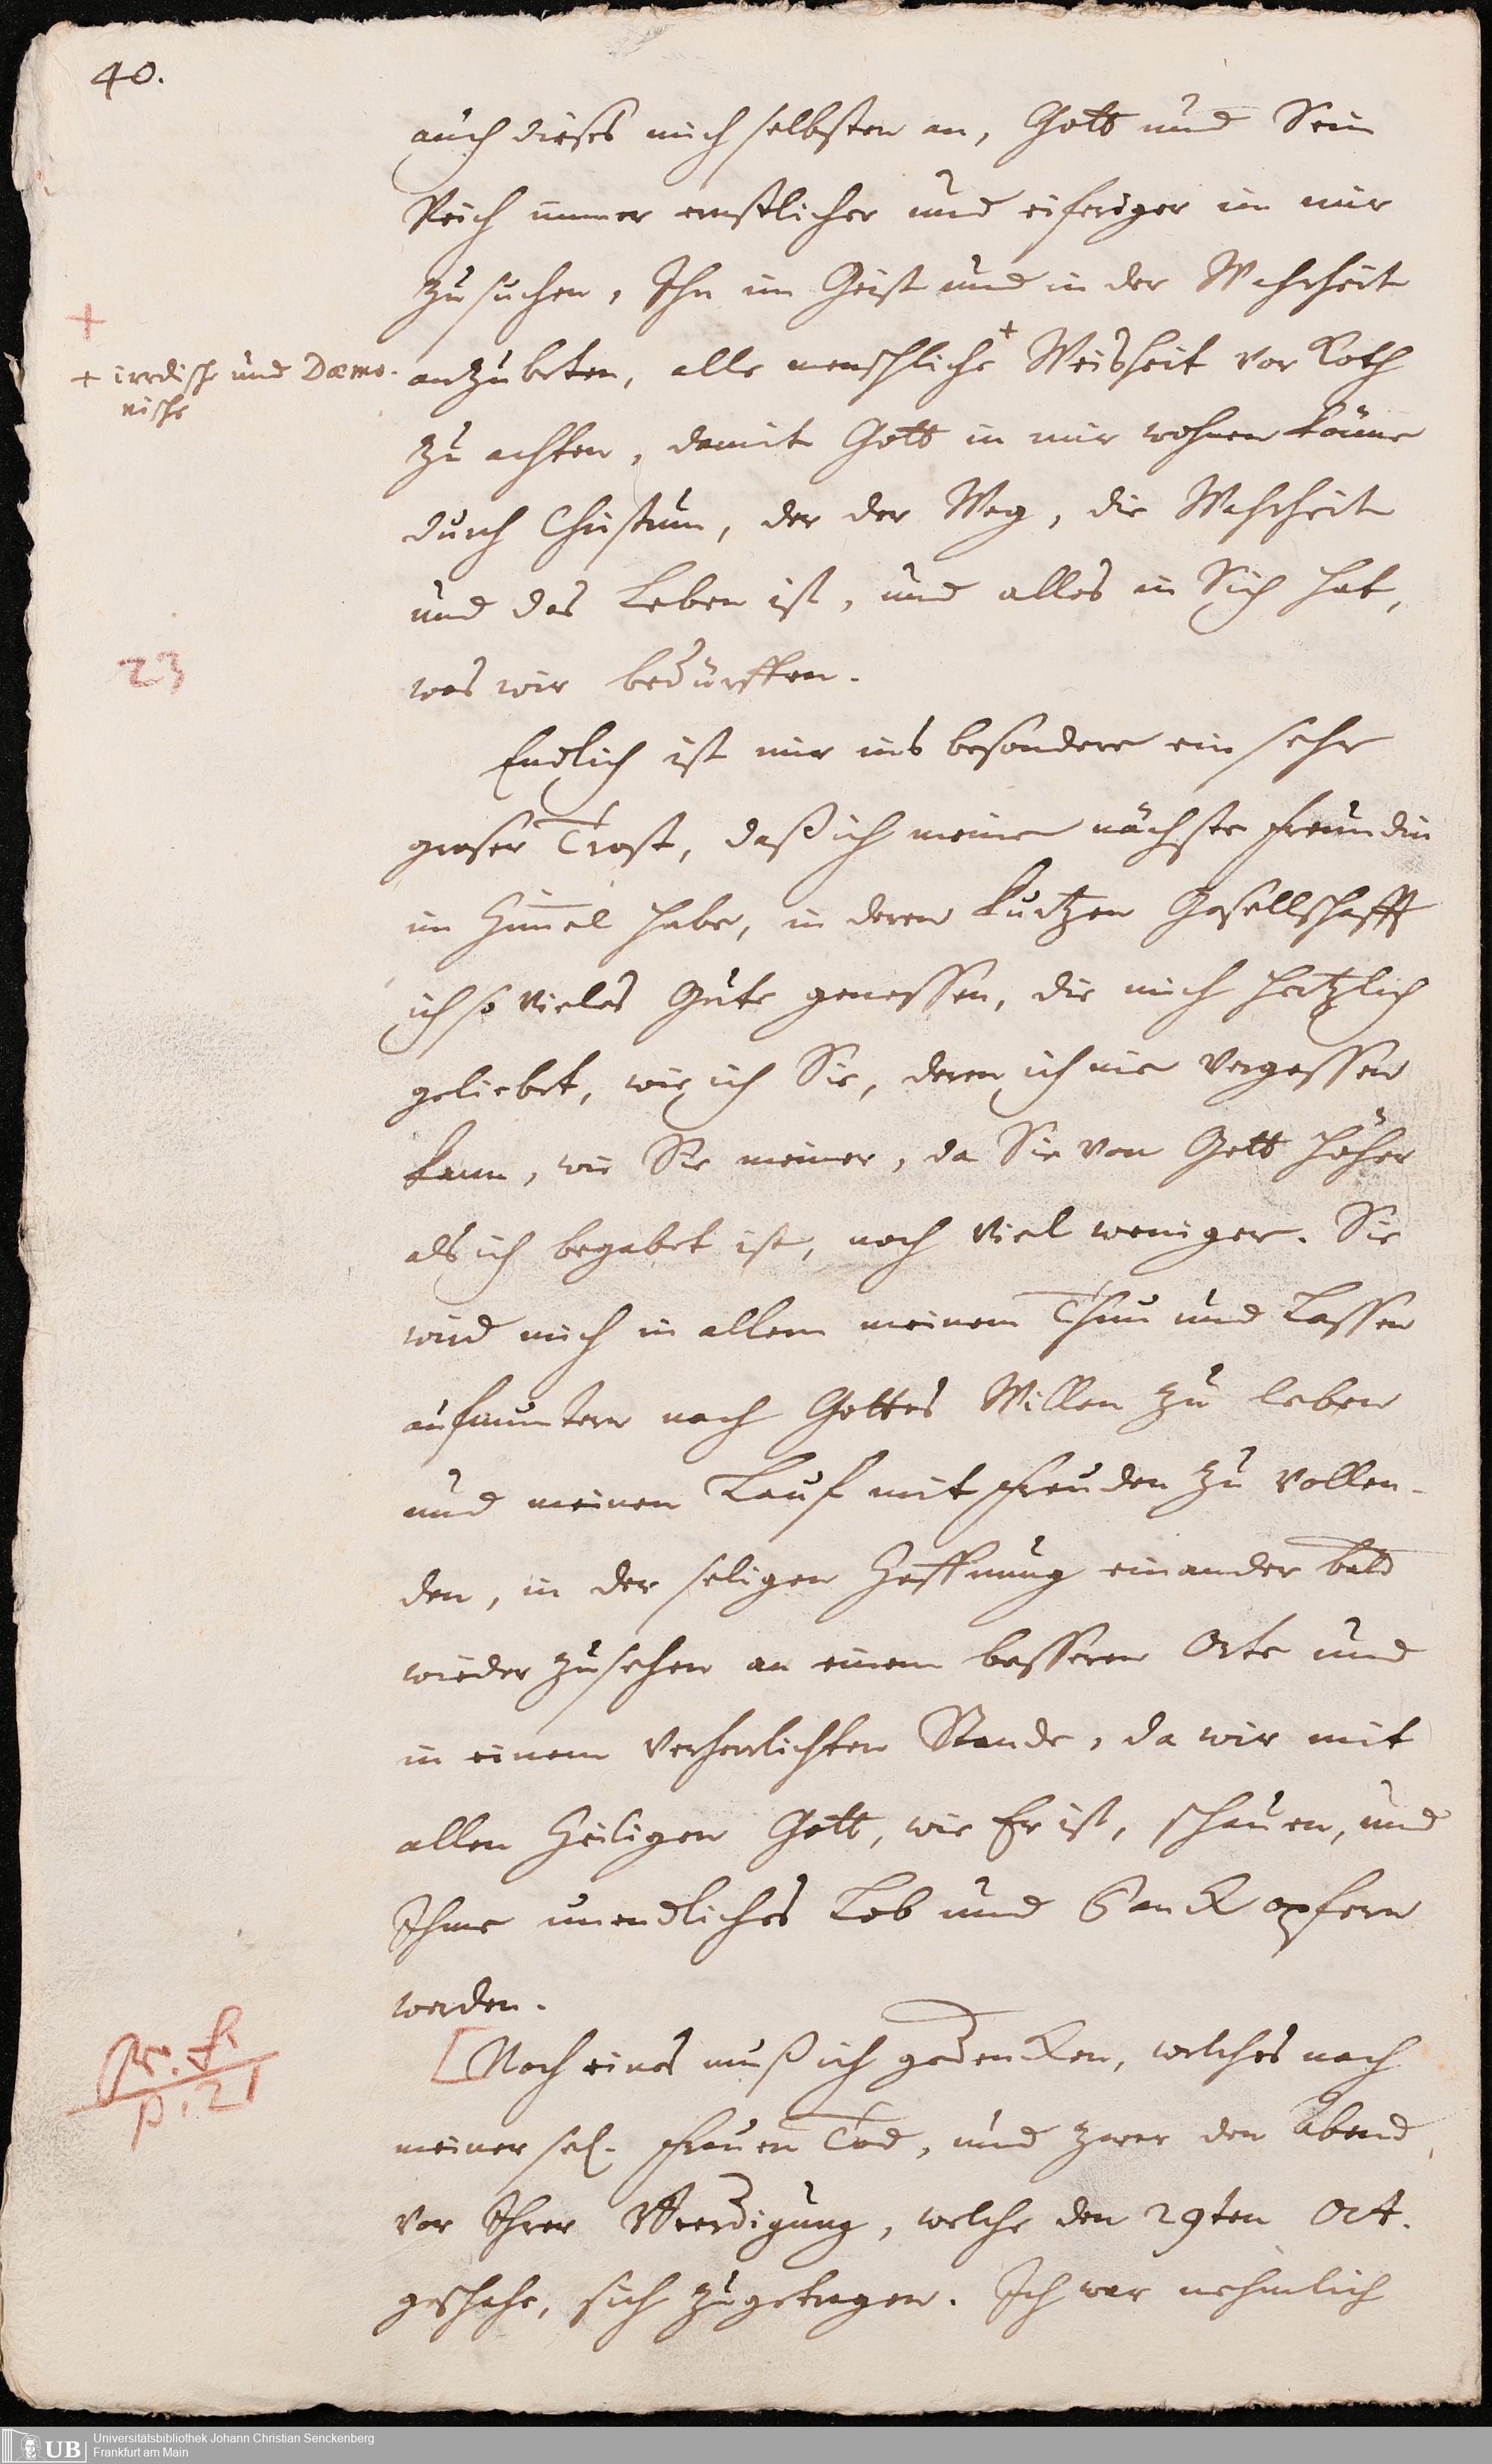 40.
auch dieses mich selbsten an, Gott und Sein
Reich immer ernstlicher und eiferiger in mir
zu suchen, Ihn im Geist und in der Wahrheit
+
+ irrdische und Dæmo-
nische
anzubeten, alle menschliche + Weisheit vor Koth
zu achten, damit Gott in mir wohnen könne
durch Christum, der der Weg, die Wahrheit
und das Leben ist, und alles in Sich hat,
23
was wir bedürffen.
Endlich ist mir ins besondere ein sehr
groser Trost, daß ich meine nächste Freundin
im Himel habe, in deren kurtzen Gesellschafft
ich so vieles Gute genossen, die mich hertzlich
geliebet, wie ich Sie, deren ich nie vergessen
kann, wie Sie meiner, da Sie von Gott höher
als ich begabet ist, noch viel weniger. Sie
wird mich in allem meinem Thun und Lassen
aufmuntern nach Gottes Willen zu leben
und meinen Lauf mit Freuden zu vollen-
den, in der seligen Hoffnung einander bald
wieder zusehen an einem besseren Orte und
in einem verherrlichten Stande, da wir mit
allen Heiligen Gott, wie Er ist, schauen, und
Ihme unendliches Lob und Danck opfern
werden.
p. 21
[Noch eines muß ich gedencken, welches nach
meiner sel. Frauen Tod, und zwar den Abend
vor Ihrer Beerdigung, welche den 29ten Oct.
geschahe, sich zugetragen. Ich war nehmlich
Universitätsbibliothek Johann Christian Senckenberg
Frankfurt am Main
UB